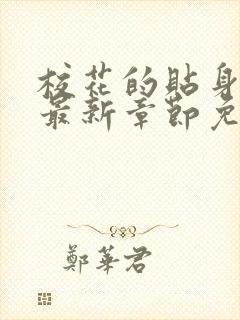 校花的貼身
最新章節免
鄭華君